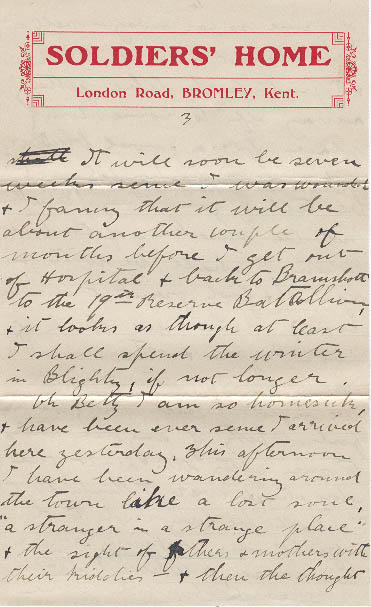 SOLDIERS' HOME
London Road, BROMLEY, Kent.
3
It will soon be seven
weeks sence I was wounded
& I fancy that it will be
about another couple of
months before I get out
of Hospital & back to Bramshott
to the 19th Reserve Battallion,
& it looks as though at least
I shall spend the winter
in Blighty, if not longer.
Oh Betty I am so homesick,
& have been ever sence I arrived
here yesterday. This afternoon
I have been wandering around
the town like a lost soul,
"a stranger in a strange place"
& the sight of fathers & mothers with
their kiddies – & then the thought